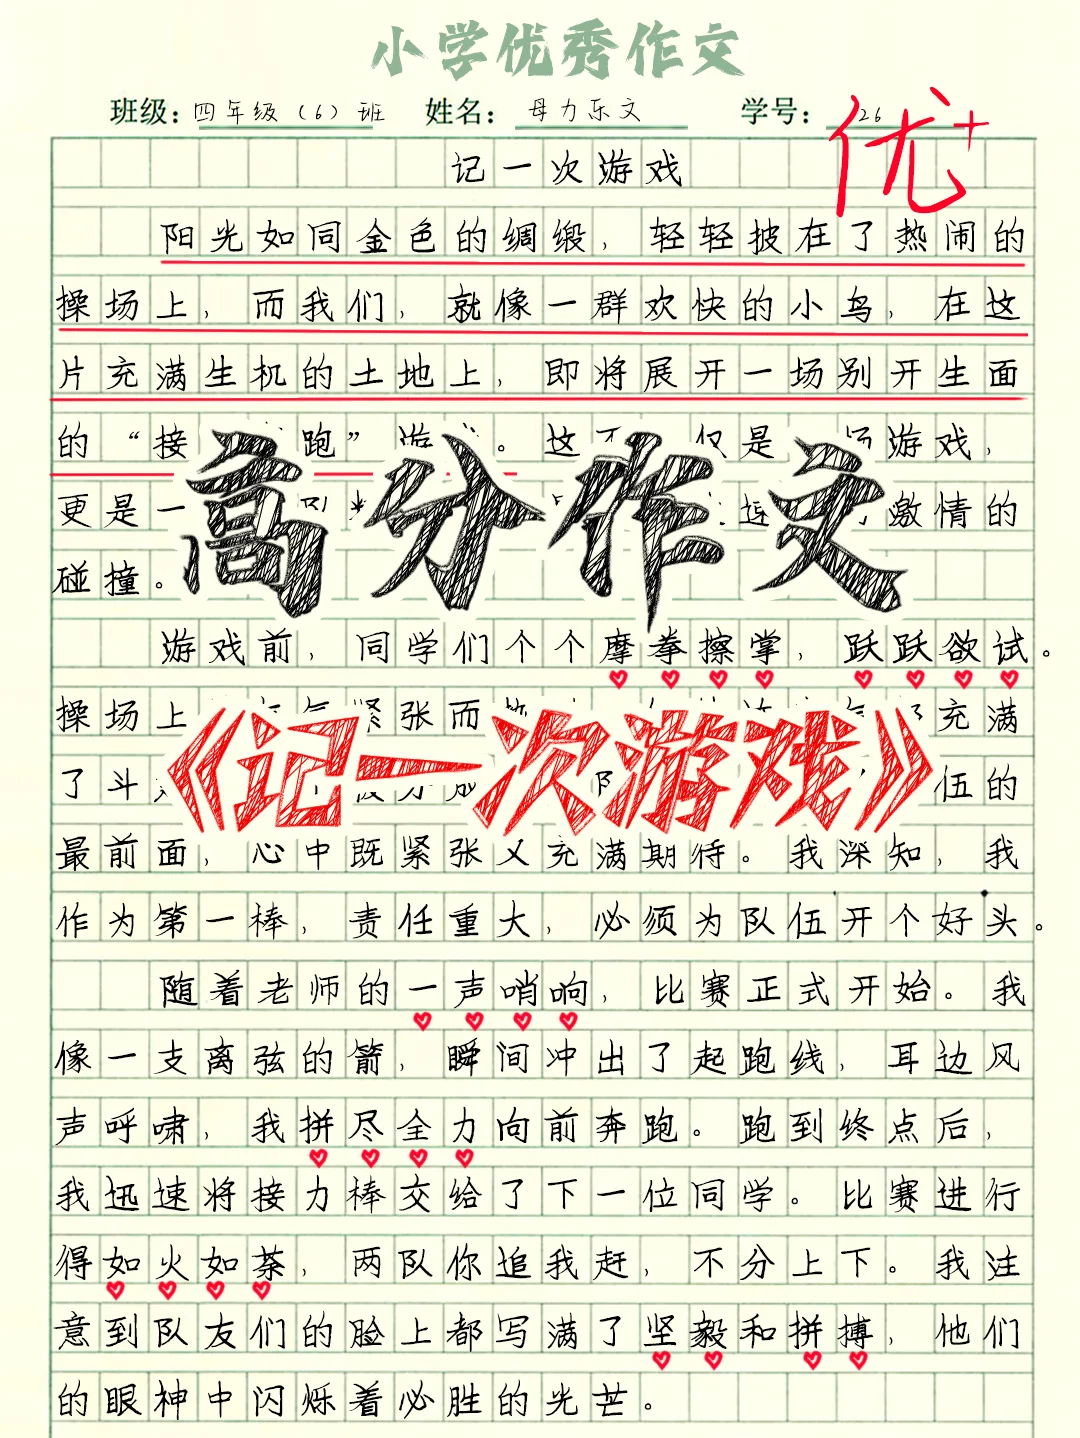 小学优秀作文
班级：四年级（6）班 姓名：母力乐文 学号：26
优+
记一次游戏
阳光如同金色的绸缎，轻轻披在了热闹的
操场上，而我们，就像一群欢快的小鸟，在这
片充满生机的土地上，即将展开一场别开生面
的“接 跑”游 。这 仅是 游戏，
更是一 激情的
碰撞。
高分作文
游戏前，同学们个个摩拳擦掌，跃跃欲试。
操场上 紧张而 充满
《记一次游戏》
了斗 伍的
最前面，心中既紧张又充满期待。我深知，我
作为第一棒，责任重大，必须为队伍开个好头。
随着老师的一声哨响，比赛正式开始。我
像一支离弦的箭，瞬间冲出了起跑线，耳边风
声呼啸，我拼尽全力向前奔跑。跑到终点后，
我迅速将接力棒交给了下一位同学。比赛进行
得如火如荼，两队你追我赶，不分上下。我注
意到队友们的脸上都写满了坚毅和拼搏，他们
的眼神中闪烁着必胜的光芒。